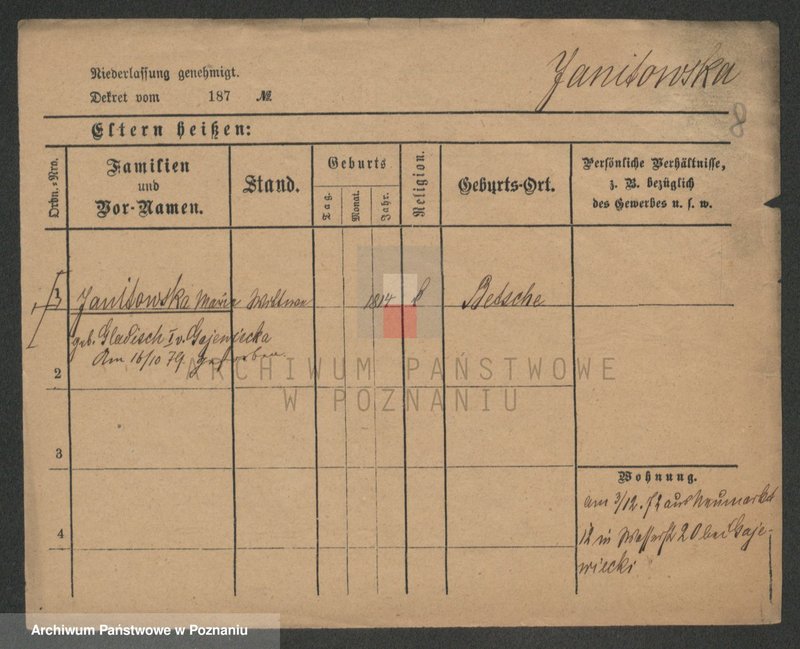 Niederlassung genehmigt.
Dekret vom 187 №
Janitowska
8
Eltern heißen:
Ordn.-Nro.
Familien
und
Vor-Namen.
Stand.
Geburts
Tag.
Monat.
Jahr.
Religion.
Geburts-Ort.
Persönliche Verhältnisse,
z. B. bezüglich
des Gewerbes u. s. w.
1
Janitowska Maria Wittwe 1814 k Betsche
geb. Gladisch I v. Gajewiecka
Am 16/10 79 gestorben.
2
3
4
Wohnung.
am 3/12. 72 aus Neumarkt
12 in Wasserst 20 bei Gaje-
wiecki
ARCHIWUM PAŃSTWOWE
W POZNANIU
Archiwum Państwowe w Poznaniu